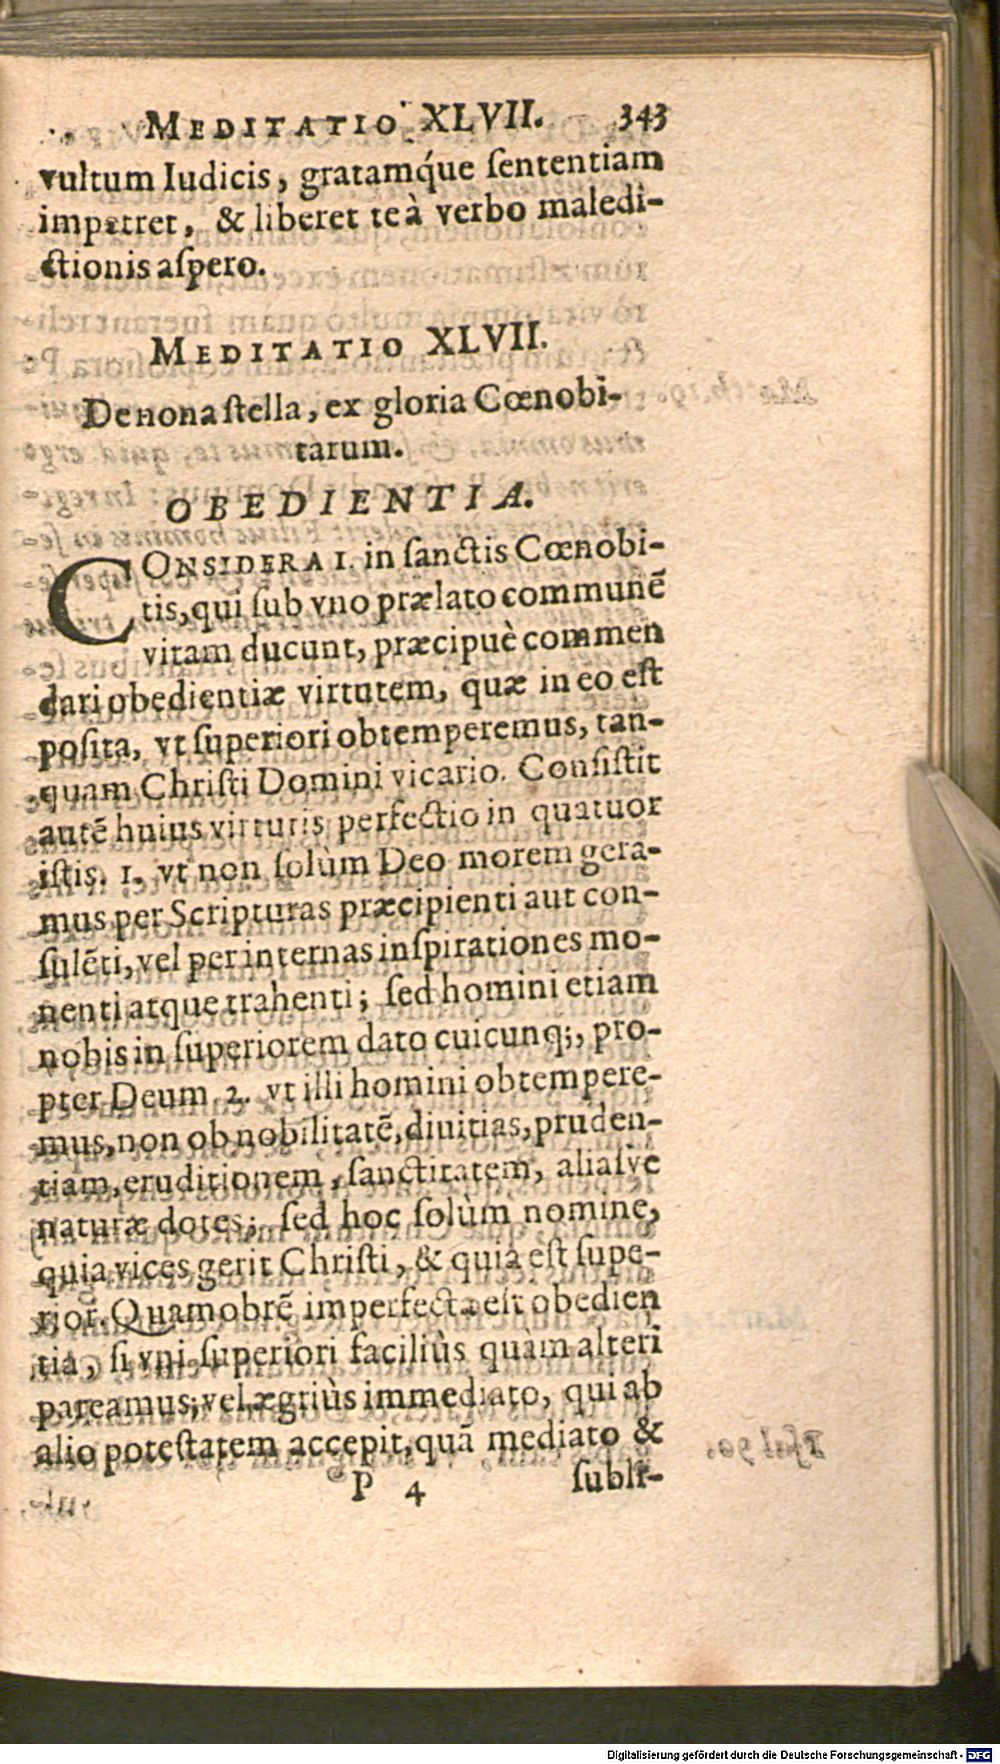 MEDITATIO XLVII. 343
vultum Iudicis, gratamq́ue ſententiam
impetret, & liberet te à verbo maledi-
ctionis aſpero.
MEDITATIO XLVII.
De nona ſtella, ex gloria Cœnobi-
tarum.
OBEDIENTIA.
CONSIDERA 1. in ſanctis Cœnobi-
tis, qui ſub vno prælato communē
vitam ducunt, præcipuè commen
dari obedientiæ virtutem, quæ in eo eſt
poſita, vt ſuperiori obtemperemus, tan-
quam Chriſti Domini vicario. Conſiſtit
autē huius virtutis perfectio in quatuor
iſtis. 1. vt non ſolùm Deo morem gera-
mus per Scripturas præcipienti aut con-
ſulēti, vel per internas inſpirationes mo-
nenti atque trahenti; ſed homini etiam
nobis in ſuperiorem dato cuicunq;, pro-
pter Deum. 2. vt illi homini obtempere-
mus, non ob nobilitatē, diuitias, pruden-
tiam, eruditionem, ſanctitatem, aliaſve
naturæ dotes; ſed hoc ſolùm nomine,
quia vices gerit Chriſti, & quia eſt ſupe-
rior. Quamobrē imperfecta eſt obedien
tia, ſi vni ſuperiori faciliùs quàm alteri
pareamus; vel ægriùs immediato, qui ab
alio poteſtatem accepit, quā mediato &
P 4 ſubli-
Digitalisierung gefördert durch die Deutsche Forschungsgemeinschaft - DFG